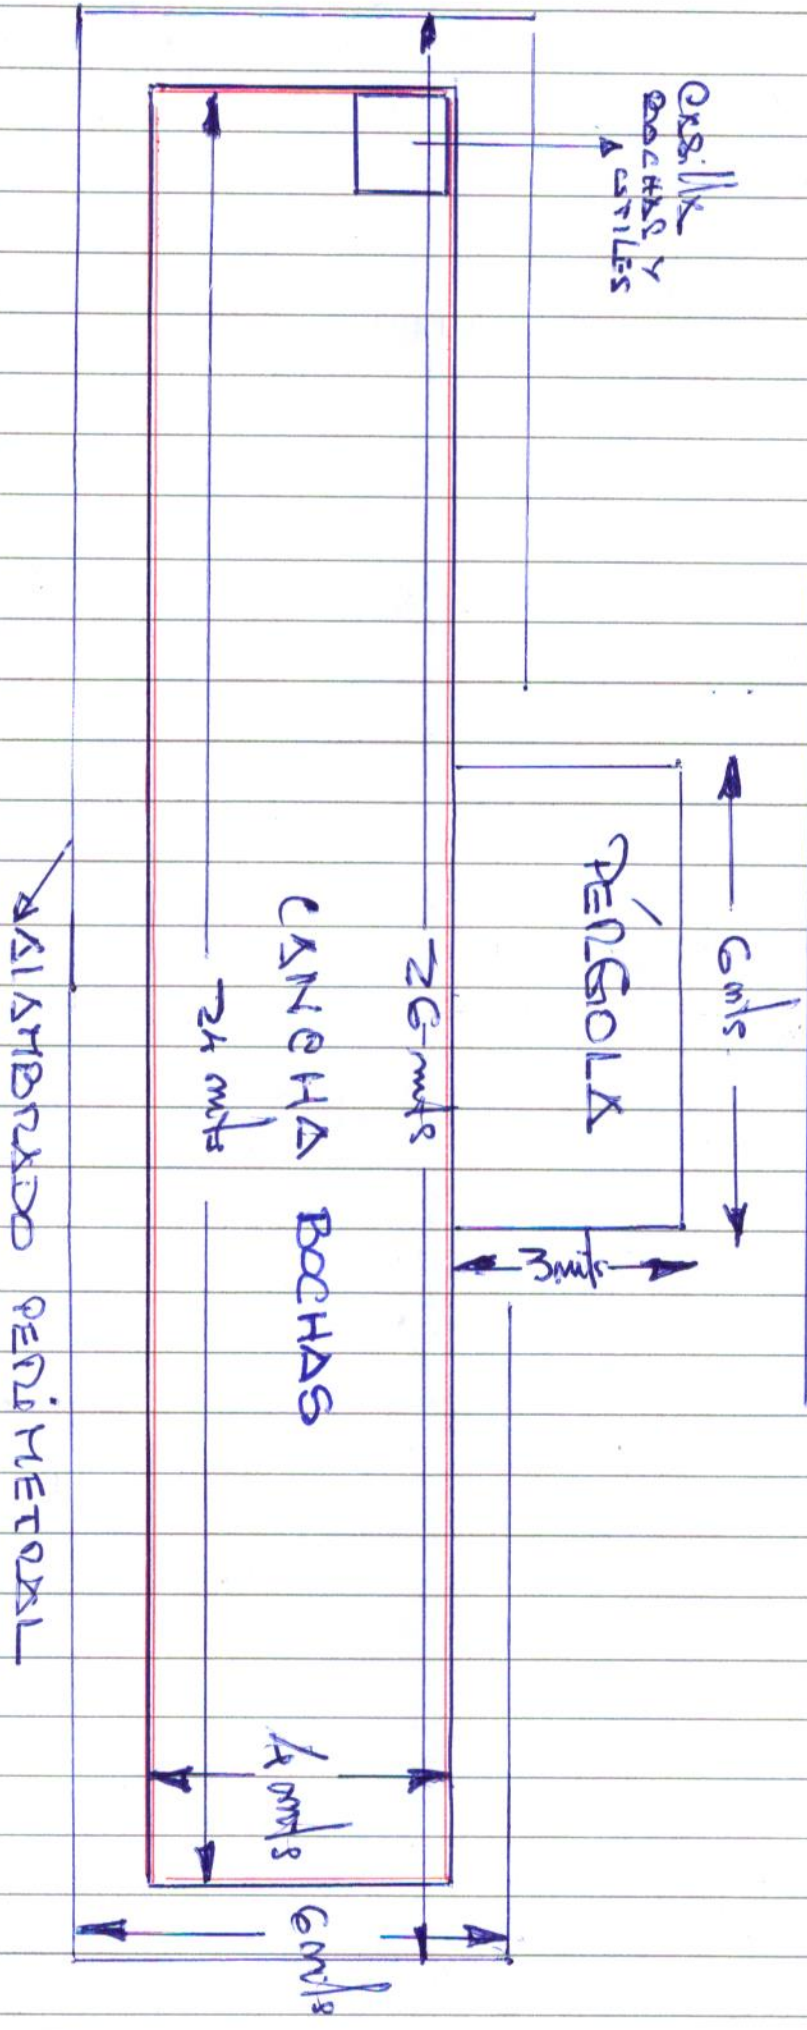 6 mts
CASillA
BOCHAS Y
UTILES
PÉRGOLA
3 mts
26 mts
CANCHA BOCHAS
4 mts
6 mts
24 mts
ALAMBRADO PERiMETRAL